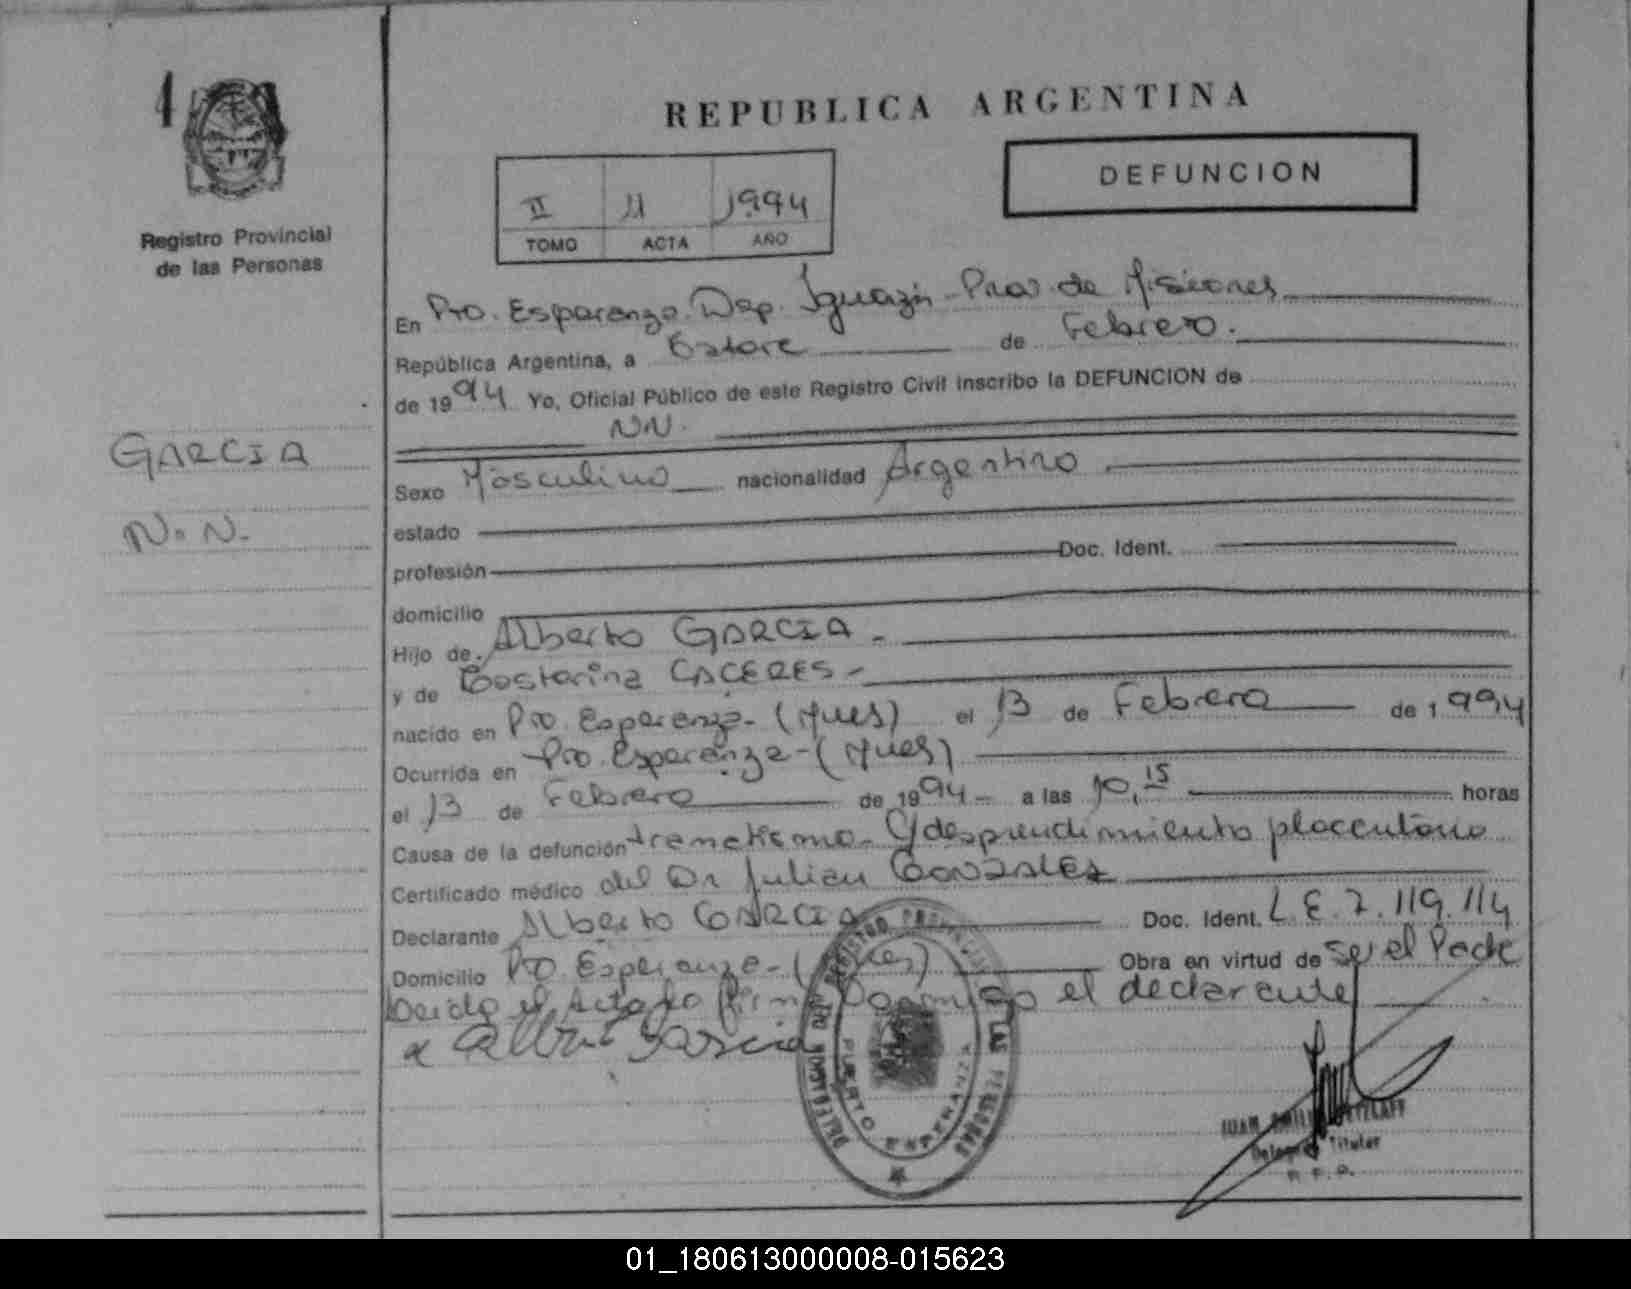 1
REPUBLICA ARGENTINA
DEFUNCION
II 11 1994
TOMO ACTA AÑO
Registro Provincial
de las Personas
GARCIA
N.N.
En Pto. Esperanza. Dep. Iguazú - Prov. de Misiones
República Argentina, a de Febrero.
de 1994 Yo, Oficial Público de este Registro Civil inscribo la DEFUNCION de
NN.
Sexo Masculino nacionalidad Argentino
estado
profesión Doc. Ident.
domicilio
Hijo de Alberto GARCIA -
y de CACERES -
nacido en Pto. Esperanza - (Mnes) el 13 de Febrero de 1994
Ocurrida en Pto. Esperanza - (Mnes)
el 13 de Febrero de 1994 - a las 10,15 horas
Causa de la defunción y desprendimiento placentario
Certificado médico del Dr Julian Gonzalez
Declarante Alberto GARCIA Doc. Ident. L.E. 7.119.114
Domicilio Pto. Esperanza - (Mnes) Obra en virtud de Ser el Padre
Leida el Acta la el declarante
Alberto Garcia
REGISTRO PROVINCIAL DE LAS PERSONAS
PUERTO ESPERANZA
JUAN
Delegado Titular
R. P. P.
01_180613000008-015623